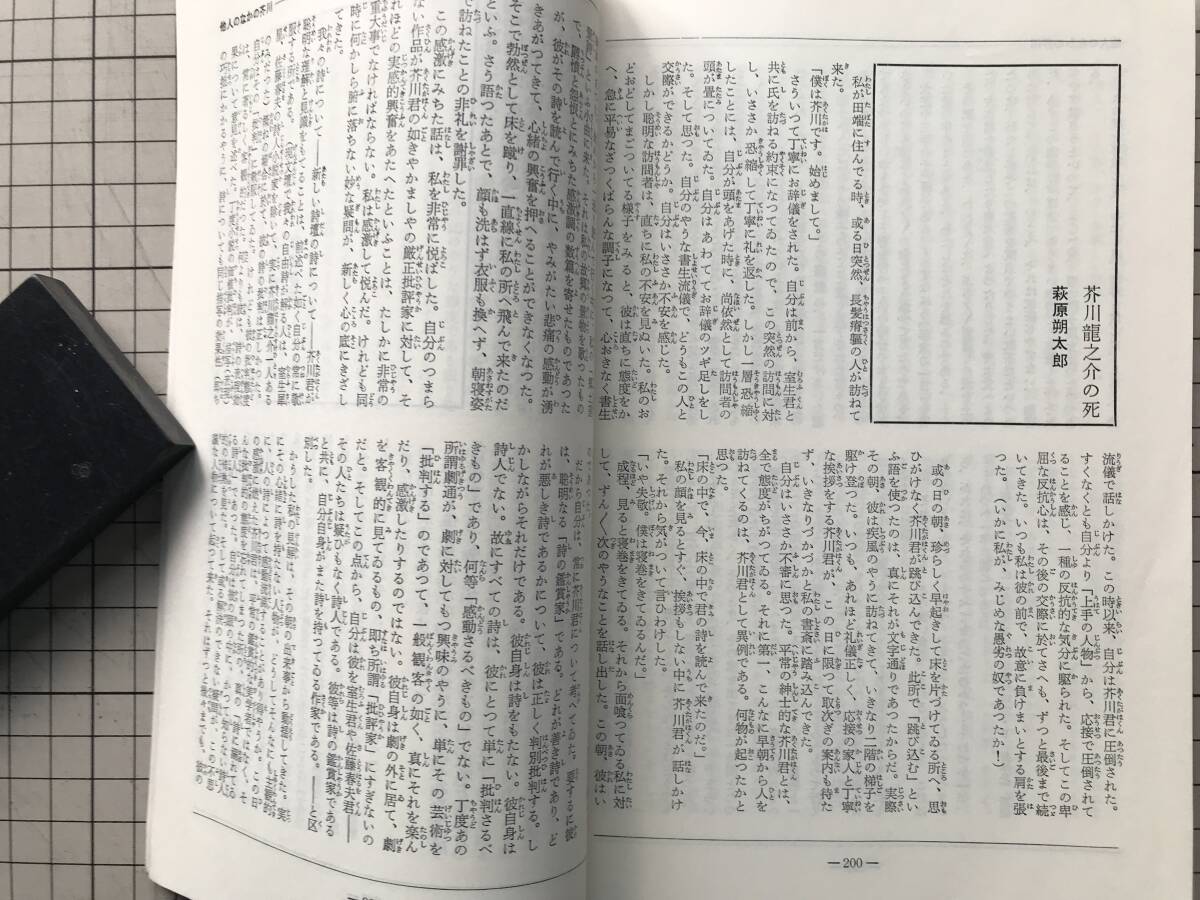 芥川龍之介の死
萩原朔太郎
私が田端に住んでる時、或る日突然、長髪瘠軀の人が訪ねて
来た。
「僕は芥川です。始めまして。」
さういつて丁寧にお辞儀をされた。自分は前から、室生君と
共に氏を訪ねる約束になつてゐたので、この突然の訪問に対
し、いささか恐縮して丁寧に礼を返した。しかし一層恐縮
したことには、自分が頭をあげた時に、尚依然として訪問者の
頭が畳についてゐた。自分はあわててお辞儀のツギ足しをし
た。そして思つた。自分のやうな書生流儀で、どうもこの人と
交際ができるかどうか。自分はいささか不安を感じた。
しかし聡明な訪問者は、直ちに私の不安を見ぬいた。私のお
どおどしてまごついてる様子をみると、彼は直ちに態度をか
へ、急に平易なざつくばらんな調子になつて、心おきなく書生
流儀で話しかけた。この時以来、自分は芥川君に圧倒された。
すくなくとも自分より「上手の人物」から、応接で圧倒されて
ることを感じ、一種の反抗的な気分に駆られた。そしてこの卑
屈な反抗心は、その後の交際に於てさへも、ずつと最後まで続
いてきた。いつも私は彼の前で、故意に負けまいとする肩を張
つた。（いかに私が、みじめな愚劣の奴であつたか！）
或の日の朝、珍らしく早起きして床を片づけてゐる所へ、思
ひがけなく芥川君が跳び込んできた。此所で「跳び込む」とい
ふ語を使つたのは、真にそれが文字通りであつたからだ。実際
その朝、彼は疾風のやうに訪ねてきて、いきなり二階の梯子を
駆け登つた。いつも、あれほど礼儀正しく、応接の家人と丁寧
な挨拶をする芥川君が、この日に限つて取次ぎの案内も待た
ず、いきなりづかづかと私の書斎に踏み込んできた。
自分はいささか不審に思つた。平常の紳士的な芥川君とは、
全で態度がちがつてゐる。それに第一、こんなに早朝から人を
訪ねてくるのは、芥川君として異例である。何物が起つたかと
思つた。
「床の中で、今、床の中で君の詩を読んで来たのだ。」
私の顔を見るとすぐ、挨拶もしない中に芥川君が話しかけ
た。それから気がついて言ひわけした。
「いや失敬。僕は寝巻をきてゐるんだ。」
成程、見ると寝巻をきてゐる。それから面喰つてる私に対
して、ずんずん次のやうなことを話し出した。この朝、彼はい
—200—
他人のなかの芥川
で、欝憤と怨恨とにみちた感激調の数篇を寄せたものであつた
が、彼がその詩を読んで行く中に、やみがたい悲痛の感動が湧
きあがつてきて、心緒の興奮を押へることができなくなつた。
そこで勃然として床を蹴り、一直線に私の所へ飛んで来たのだ
といふ。さう語つたあとで、顔も洗はず衣服も換へず、朝寝姿
で訪ねたことの非礼を謝罪した。
この感激にみちた話は、私を非常に悦ばした。自分のつまら
ない作品が芥川君の如きやかましやの厳正批評家に対して、そ
れほどの実感的興奮をあたへたといふことは、たしかに非常の
重大事でなければならない。私は感激して悦んだ。けれども同
時に何かしら腑に落ちない妙な疑問が、新しく心の底にきざし
てきた。
我々の詩について——新しい詩壇の詩について——芥川君が
だから自分は、常に芥川君について考へてゐた。要するに彼
は、聡明なる「詩の鑑賞家」である。どれが善き詩であり、ど
れが悪しき詩であるかについて、彼は正しく判別批判する。し
かしながらそれだけである。彼自身は詩をもたない。彼自身は
詩人でない。故にすべての詩は、彼にとつて単に「批判さるべ
きもの」であり、何等「感動さるべきもの」でない。丁度あの
所謂劇通が、劇に対してもつ興味のやうに、単にその芸術を
「批判する」のであつて、一般観客の如く、真にそれを楽ん
だり、感激したりするのではない。彼自身は劇の外に居て、劇
を客観的に見てゐるもの、即ち所謂「批評家」にすぎないの
だと。そしてこの点から、自分は彼を室生君や佐藤春夫君——
その人たちは疑ひもなく詩人である。彼等は詩の鑑賞家である
と共に、自分自身がまた詩を持つてゐる作家である。——と区
別した。